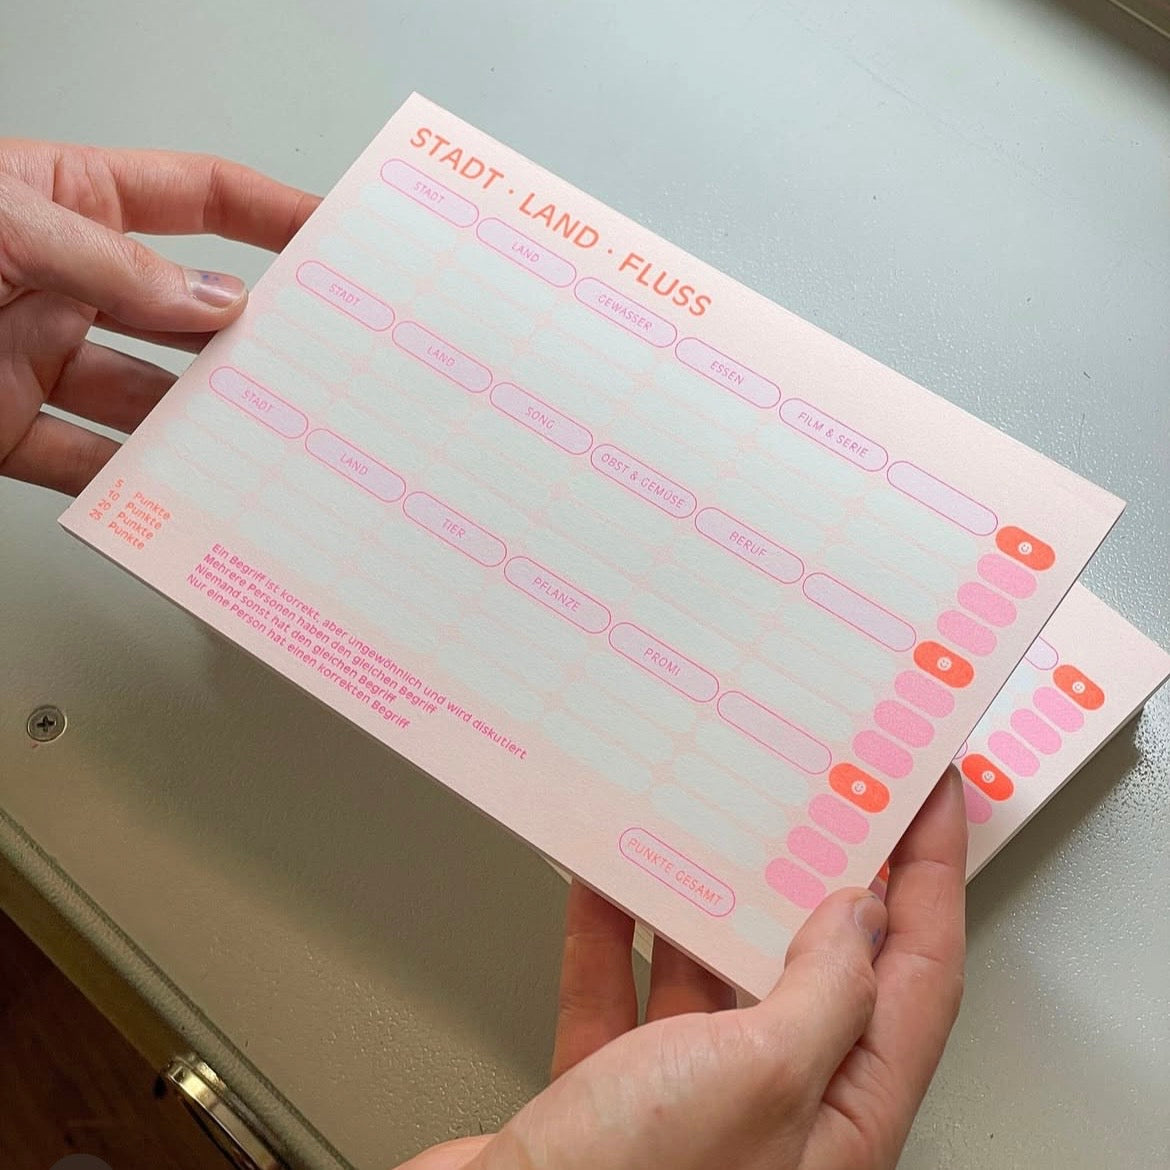 STADT · LAND · FLUSS
STADT LAND GEWÄSSER ESSEN FILM & SERIE
STADT LAND SONG OBST & GEMÜSE BERUF
STADT LAND TIER PFLANZE PROMI
5 Punkte Ein Begriff ist korrekt, aber ungewöhnlich und wird diskutiert
10 Punkte Mehrere Personen haben den gleichen Begriff
20 Punkte Niemand sonst hat den gleichen Begriff
25 Punkte Nur eine Person hat einen korrekten Begriff
PUNKTE GESAMT